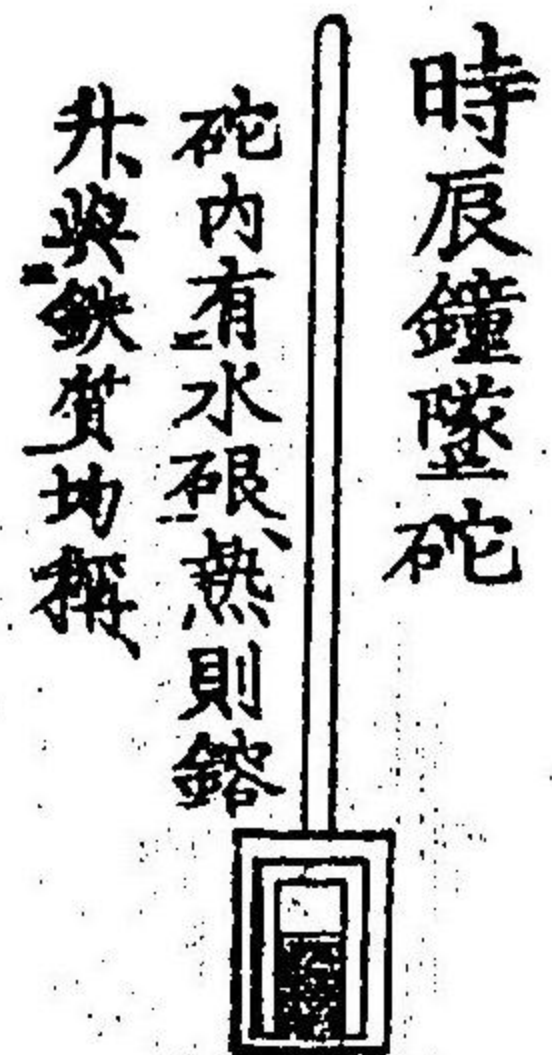 時辰鐘墜砣
砣內有水硍、𤍠則鎔
升、與鉄質均稱、